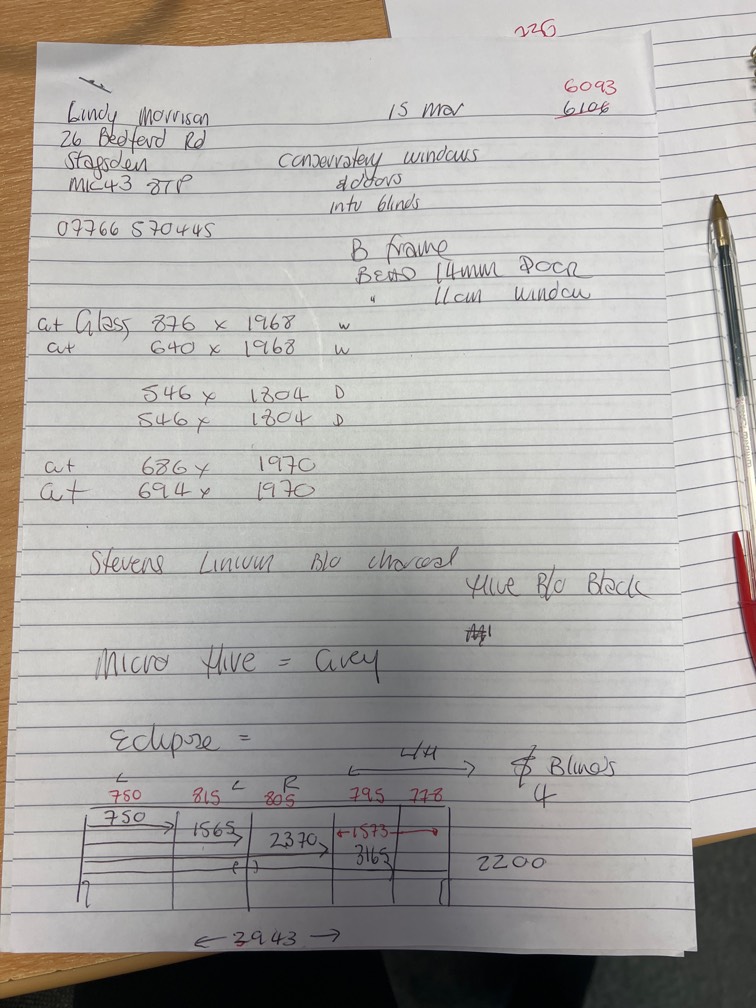 226
6093
6106
Lindy Morrison 15 Mar
26 Bedford Rd
Stagsden
MK43 8TP
Conservatory windows
& doors
intu blinds
07766 570445
B frame
BEAD 14mm DOOR
" 11cm window
at Glass 876 x 1968 W
at 640 x 1968 W
546 x 1804 D
546 x 1804 D
at 686 x 1970
at 694 x 1970
Stevens B/o charcoal
Hive B/o Black
Micro Hive = Grey
Eclipse =
L/H
Blinds
4
L L R
750 815 805 795 778
750 1565 2370 1573
3165
2200
3943